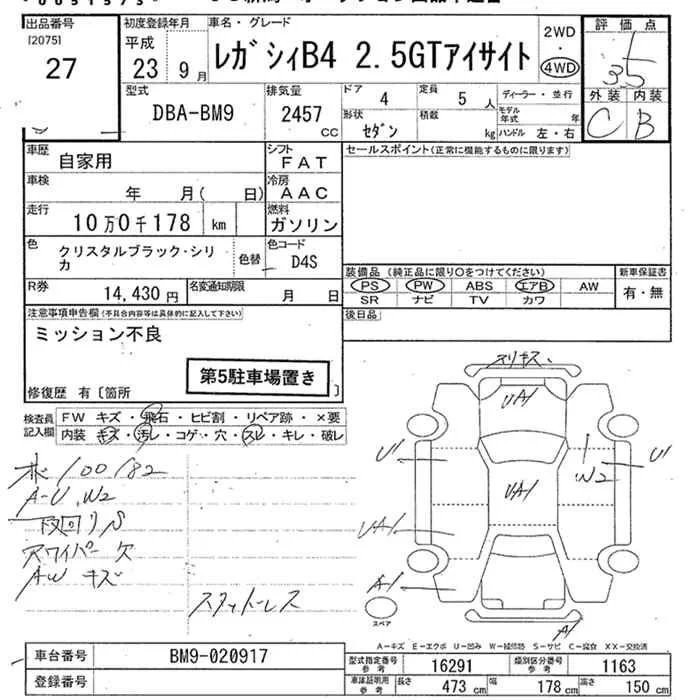 出品番号
[2075]
27
初度登録年月
平成
23 9月
車名・グレード
レガシィB4 2.5GTアイサイト
2WD
・
4WD
評価点
3.5
外装 内装
C B
型式
DBA-BM9
排気量
2457
CC
ドア
4
定員
5人
ディーラー・並行
形状
セダン
積載
kg
モデル年式
年
ハンドル 左・右
車歴
自家用
シフト
FAT
車検
年 月( 日)
冷房
AAC
走行
10万0千178 km
燃料
ガソリン
色
クリスタルブラック・シリカ
色替
色コード
D4S
R券
14,430円
名変通知期限
月 日
セールスポイント(正常に機能するものに限ります)
装備品 (純正品に限り○をつけてください)
PS PW ABS エアB AW
SR ナビ TV カワ
新車保証書
有・無
後日品
注意事項申告欄(不具合内容等は具体的に記入して下さい)
ミッション不良
第5駐車場置き
修復歴 有〔箇所 〕
検査員記入欄
FW キズ・飛石・ヒビ割・リペア跡・×要
内装 キズ・汚レ・コゲ・穴・スレ・キレ・破レ
100182
A-U、W2
下回りS
Rワイパー欠
AWキズ
スタッドレス
スリキズ
UA1
U1
U1
W2
UA1
UA1
A1
A1
スペア
A-キズ E-エクボ U-凹み W-補修跡 S-サビ C-腐食 XX-交換済
車台番号
BM9-020917
登録番号
型式指定番号
参考
16291
類別区分番号
参考
1163
車庫証明用
参考
長さ
473 cm
幅
178 cm
高さ
150 cm